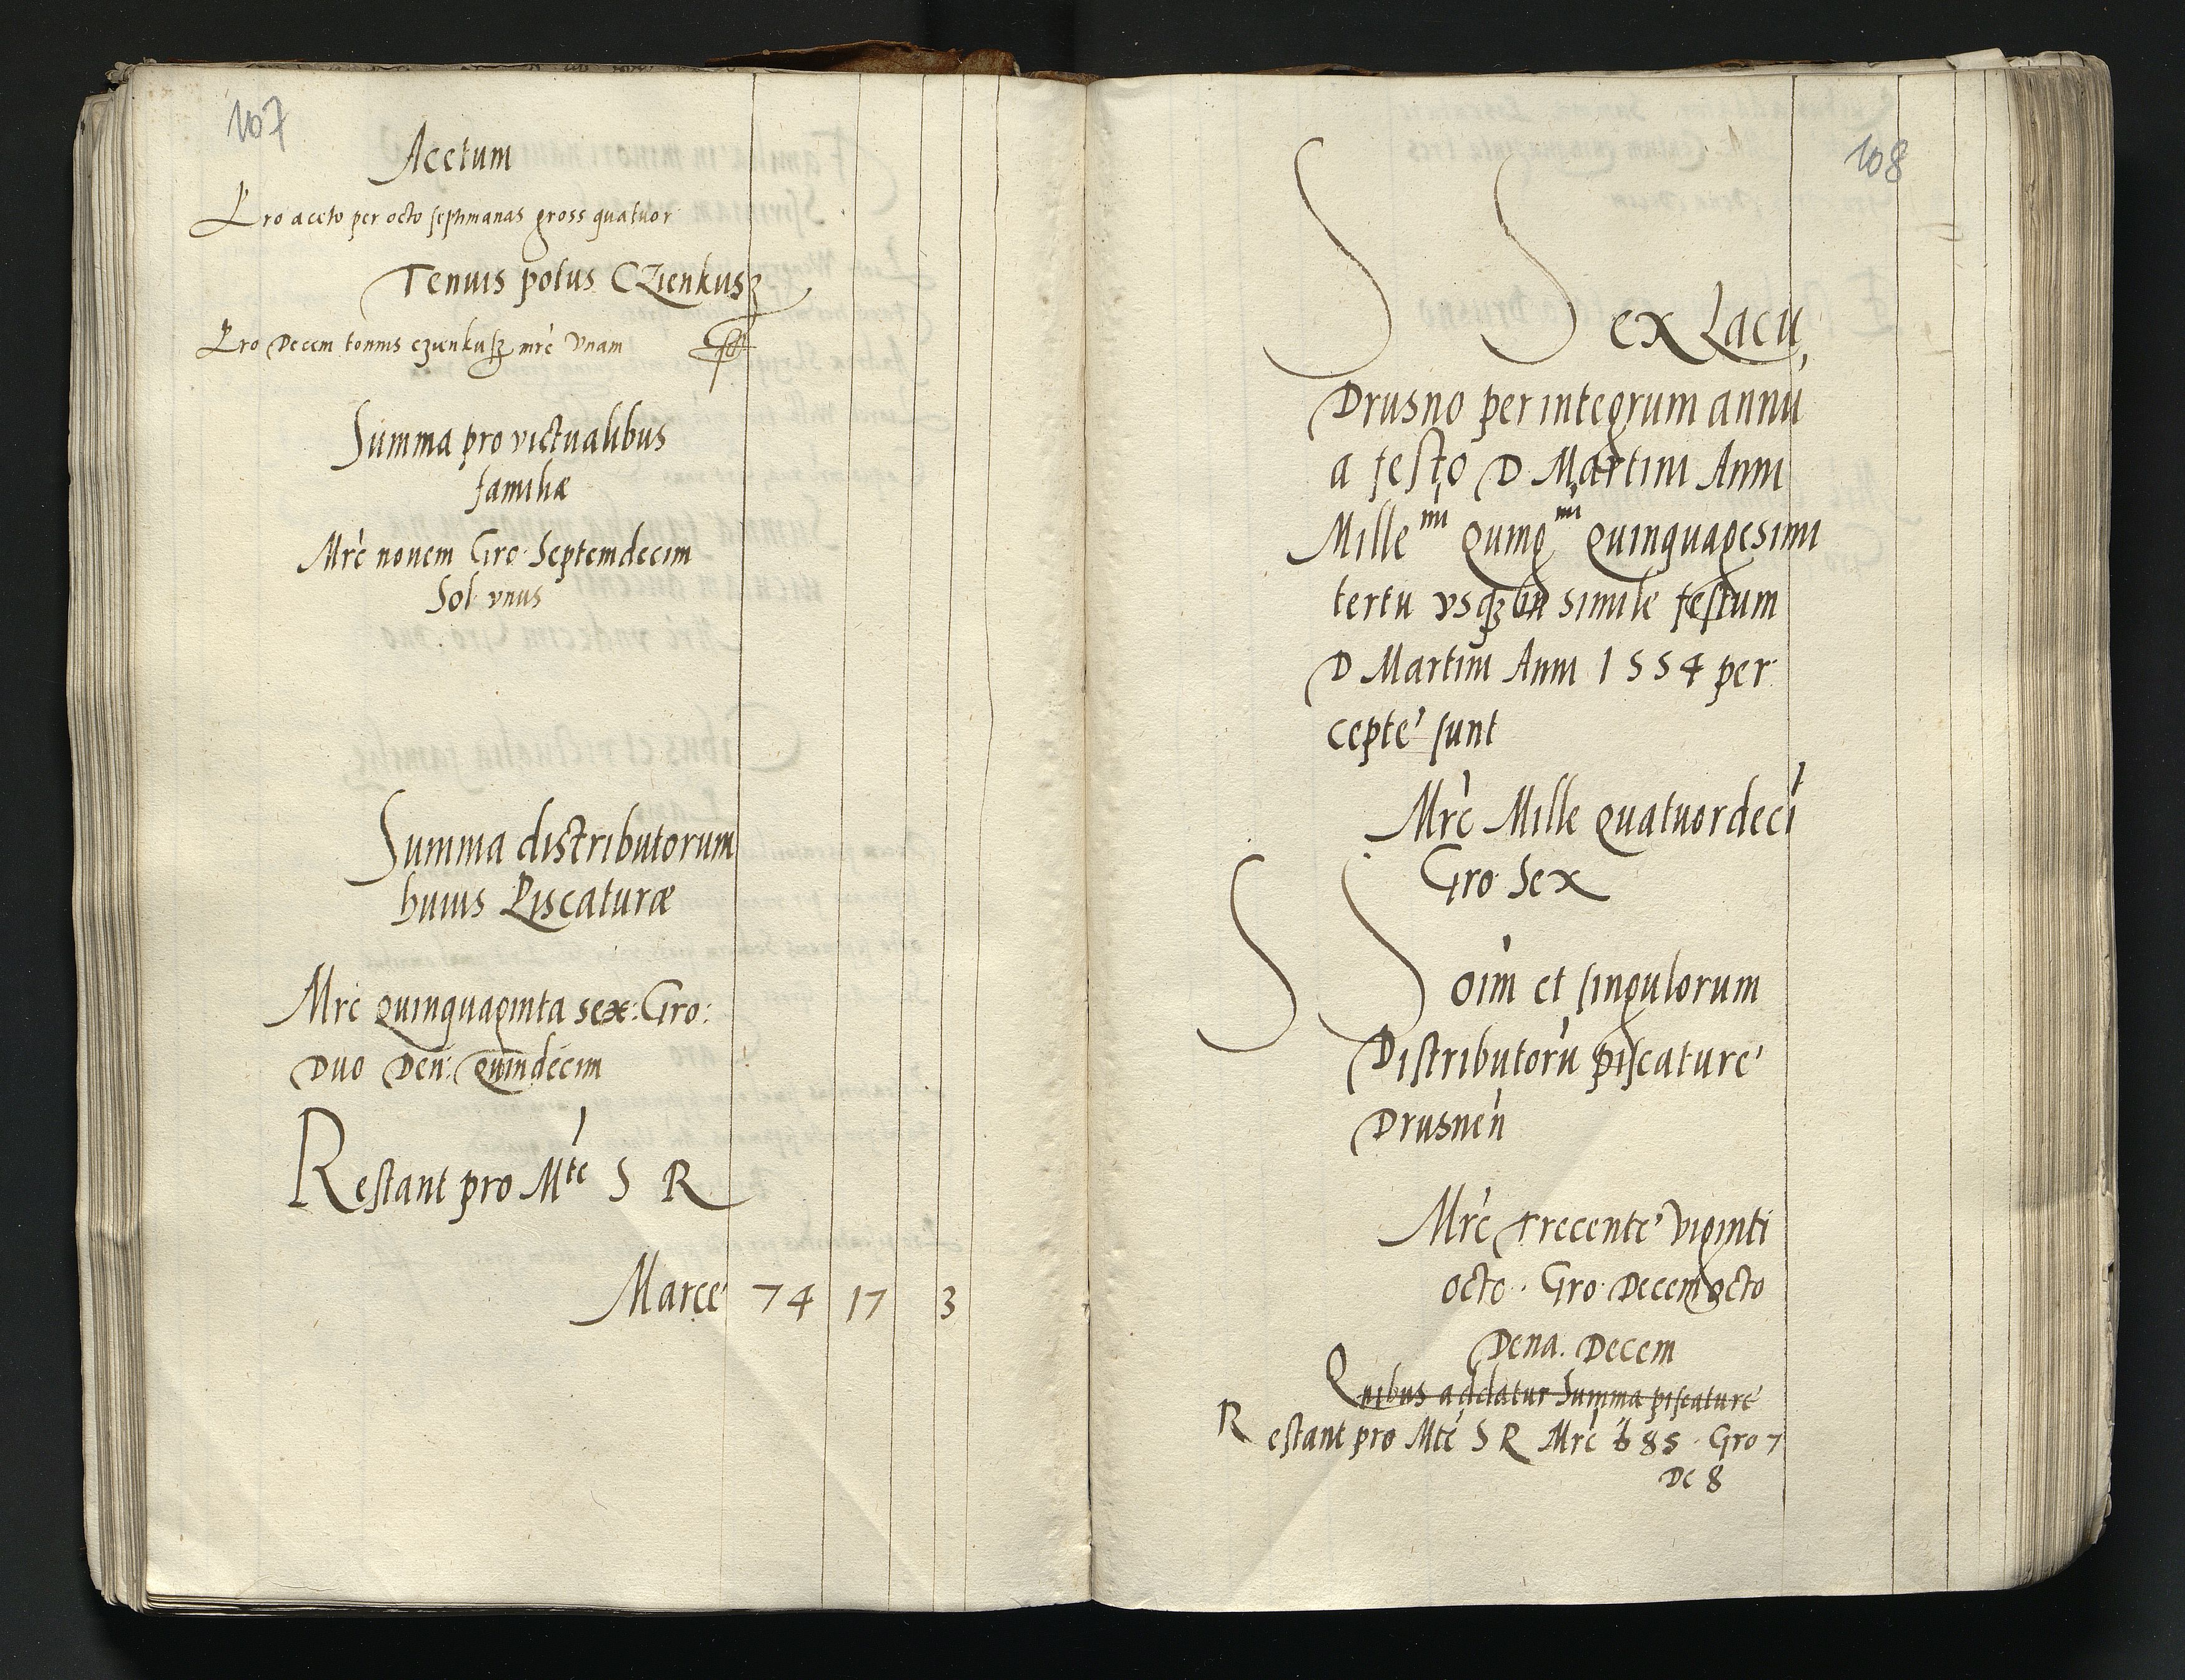 107
Acetum
Pro aceto per octo septimanas gross quatuor
Tenuis potus CZienkusz
Pro Decem tonnis czienkusz mrc Vnam
Summa pro victualibus
familiæ
Mrc nouem Gro Septemdecim
Sol vnus
Summa distributorum
huius Piscaturæ
Mrc quinquaginta sex: Gro:
Duo Den: Quindecim
Restant pro Mte S R
Marce 74 17 3
108
S S ex Lacu
Drusno per integrum annu
a festo D Martini Anni
Millemi Quingmi quinquagesimi
tertii vsqz ad simile festum
D Martini Anni 1554 per
cepte sunt
Mrc Mille quatuordeci
Gro Sex
S S oim et singulorum
Distributoru piscature
Drusnen
Mrc Trecente Viginti
octo Gro Decemocto
Dena. Decem
Quibus addatur Summa piscature
Restant pro Mte S R Mrc 685 Gro 7
De 8